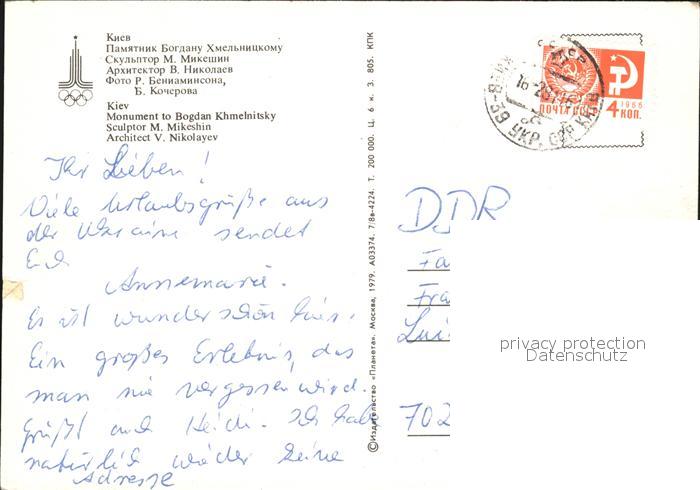 Киев
Памятник Богдану Хмельницкому
Скульптор М. Микешин
Архитектор В. Николаев
Фото Р. Бениаминсона,
Б. Кочерова
Kiev
Monument to Bogdan Khmelnitsky
Sculptor M. Mikeshin
Architect V. Nikolayev
Ihr Lieben!
Viele Urlaubsgrüße aus
der Ukraine sendet
Euch
Annemarie.
Es ist wunderschön hier.
Ein großes Erlebnis, das
man nie vergessen wird.
Grüßt auch Heidi. Ich habe
natürlich wieder keine
Adresse
©Издательство «Планета». Москва, 1979. А03374. 7/8в-4224. Т. 200 000. Ц. 6 к. З. 805. КПК
ПОЧТА СССР
1966
4 КОП.
УКР.
DDR
Fa
Fra
702
privacy protection
Datenschutz